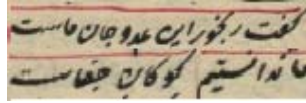 گفت رنجور این عدو جان ماست
ما ندانستیم کو کان جفاست